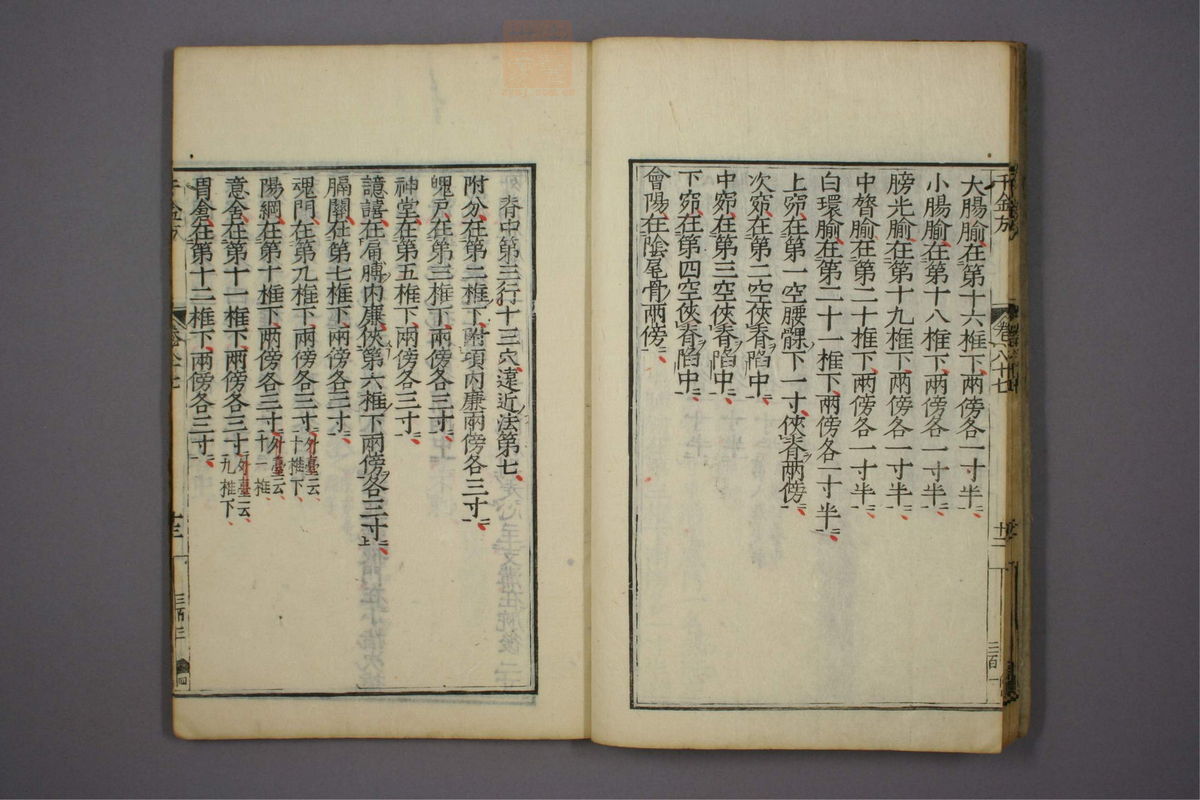 千金方 卷八十七 廿二 三百一
大腸腧在第十六椎下兩傍各一寸半
小腸腧在第十八椎下兩傍各一寸半
膀光腧在第十九椎下兩傍各一寸半
中膂腧在第二十椎下兩傍各一寸半
白環腧在第二十一椎下兩傍各一寸半
上窌在第一空腰髁下一寸俠脊兩傍
次窌在第二空俠脊陷中
中窌在第三空俠脊陷中
下窌在第四空俠脊陷中
會陽在陰尾骨兩傍
脊中第三行十三穴遠近法第七
附分在第二椎下附項內廉兩傍各三寸
魄戶在第三椎下兩傍各三寸
神堂在第五椎下兩傍各三寸
譩譆在肩膊內廉俠第六椎下兩傍各三寸
膈關在第七椎下兩傍各三寸
魂門在第九椎下兩傍各三寸外臺云十椎下
陽綱在第十椎下兩傍各三寸外臺云十一椎
意舍在第十一椎下兩傍各三寸外臺云九椎下
胃倉在第十二椎下兩傍各三寸
三百三